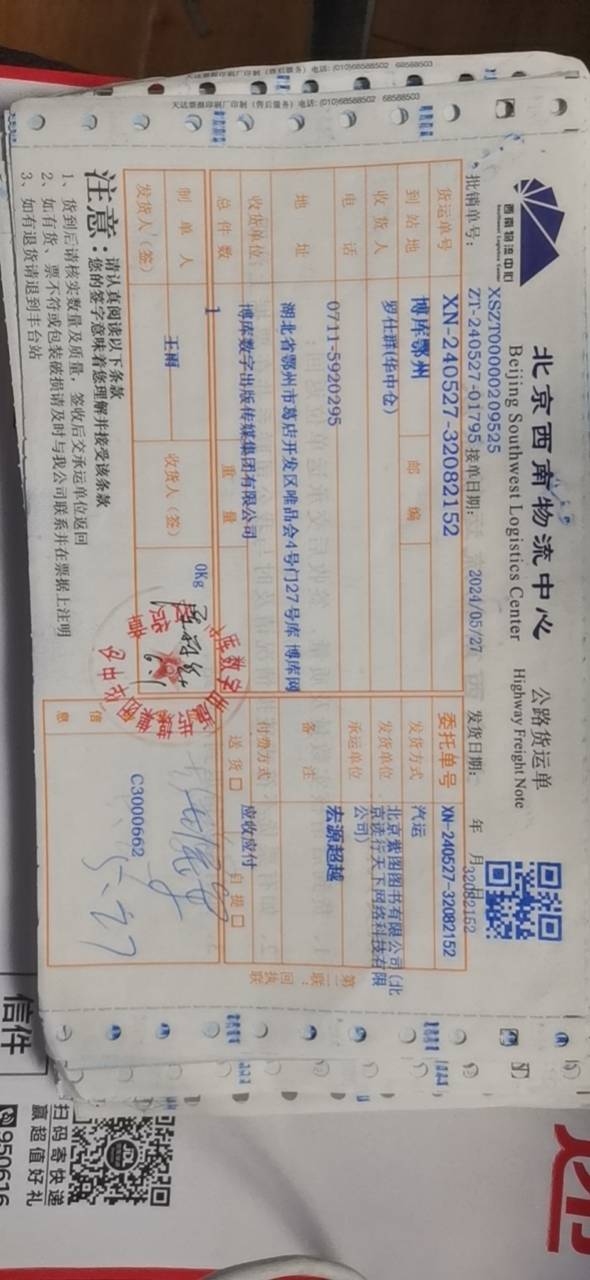 天达票据印刷厂印制（售后服务）电话：(010)68588502 68588503
天达票据印刷厂印制（售后服务）电话：(010)68588502 68588503
西南物流中心
Southwest Logistics Center
北京西南物流中心 公路货运单
Beijing Southwest Logistics Center Highway Freight Note
XSZT00000209525
批销单号： ZT-240527-01795 接单日期： 2024/05/27 发货日期： 年 月 日
32082152
货运单号 XN-240527-32082152 委托单号 XN-240527-32082152
到站地 博库鄂州 邮编 发货方式 汽运
收货人 罗仕群(华中仓) 发货单位 北京紫图图书有限公司(北京读行天下网络科技有限公司)
电话 0711-5920295 承运单位 宏源超越
地址 湖北省鄂州市葛店开发区唯品会4号门27号库 博库网 备注
收货单位 博库数字出版传媒集团有限公司 付费方式 应收应付
总件数 1 重量 0Kg 送货 □ 自提 □
制单人 王雨 收货人（签） 信息 C3000662
发货人（签）
5.27
第二联：回执联
注意：请认真阅读以下条款
您的签字意味着您理解并接受该条款
1、货到后请核实数量及质量，签收后交承运单位返回
2、如有货、票不符或包装破损请及时与我公司联系并在票据上注明
3、如有退货请退到丰台站
信件
扫码寄快递
赢超值好礼
950616